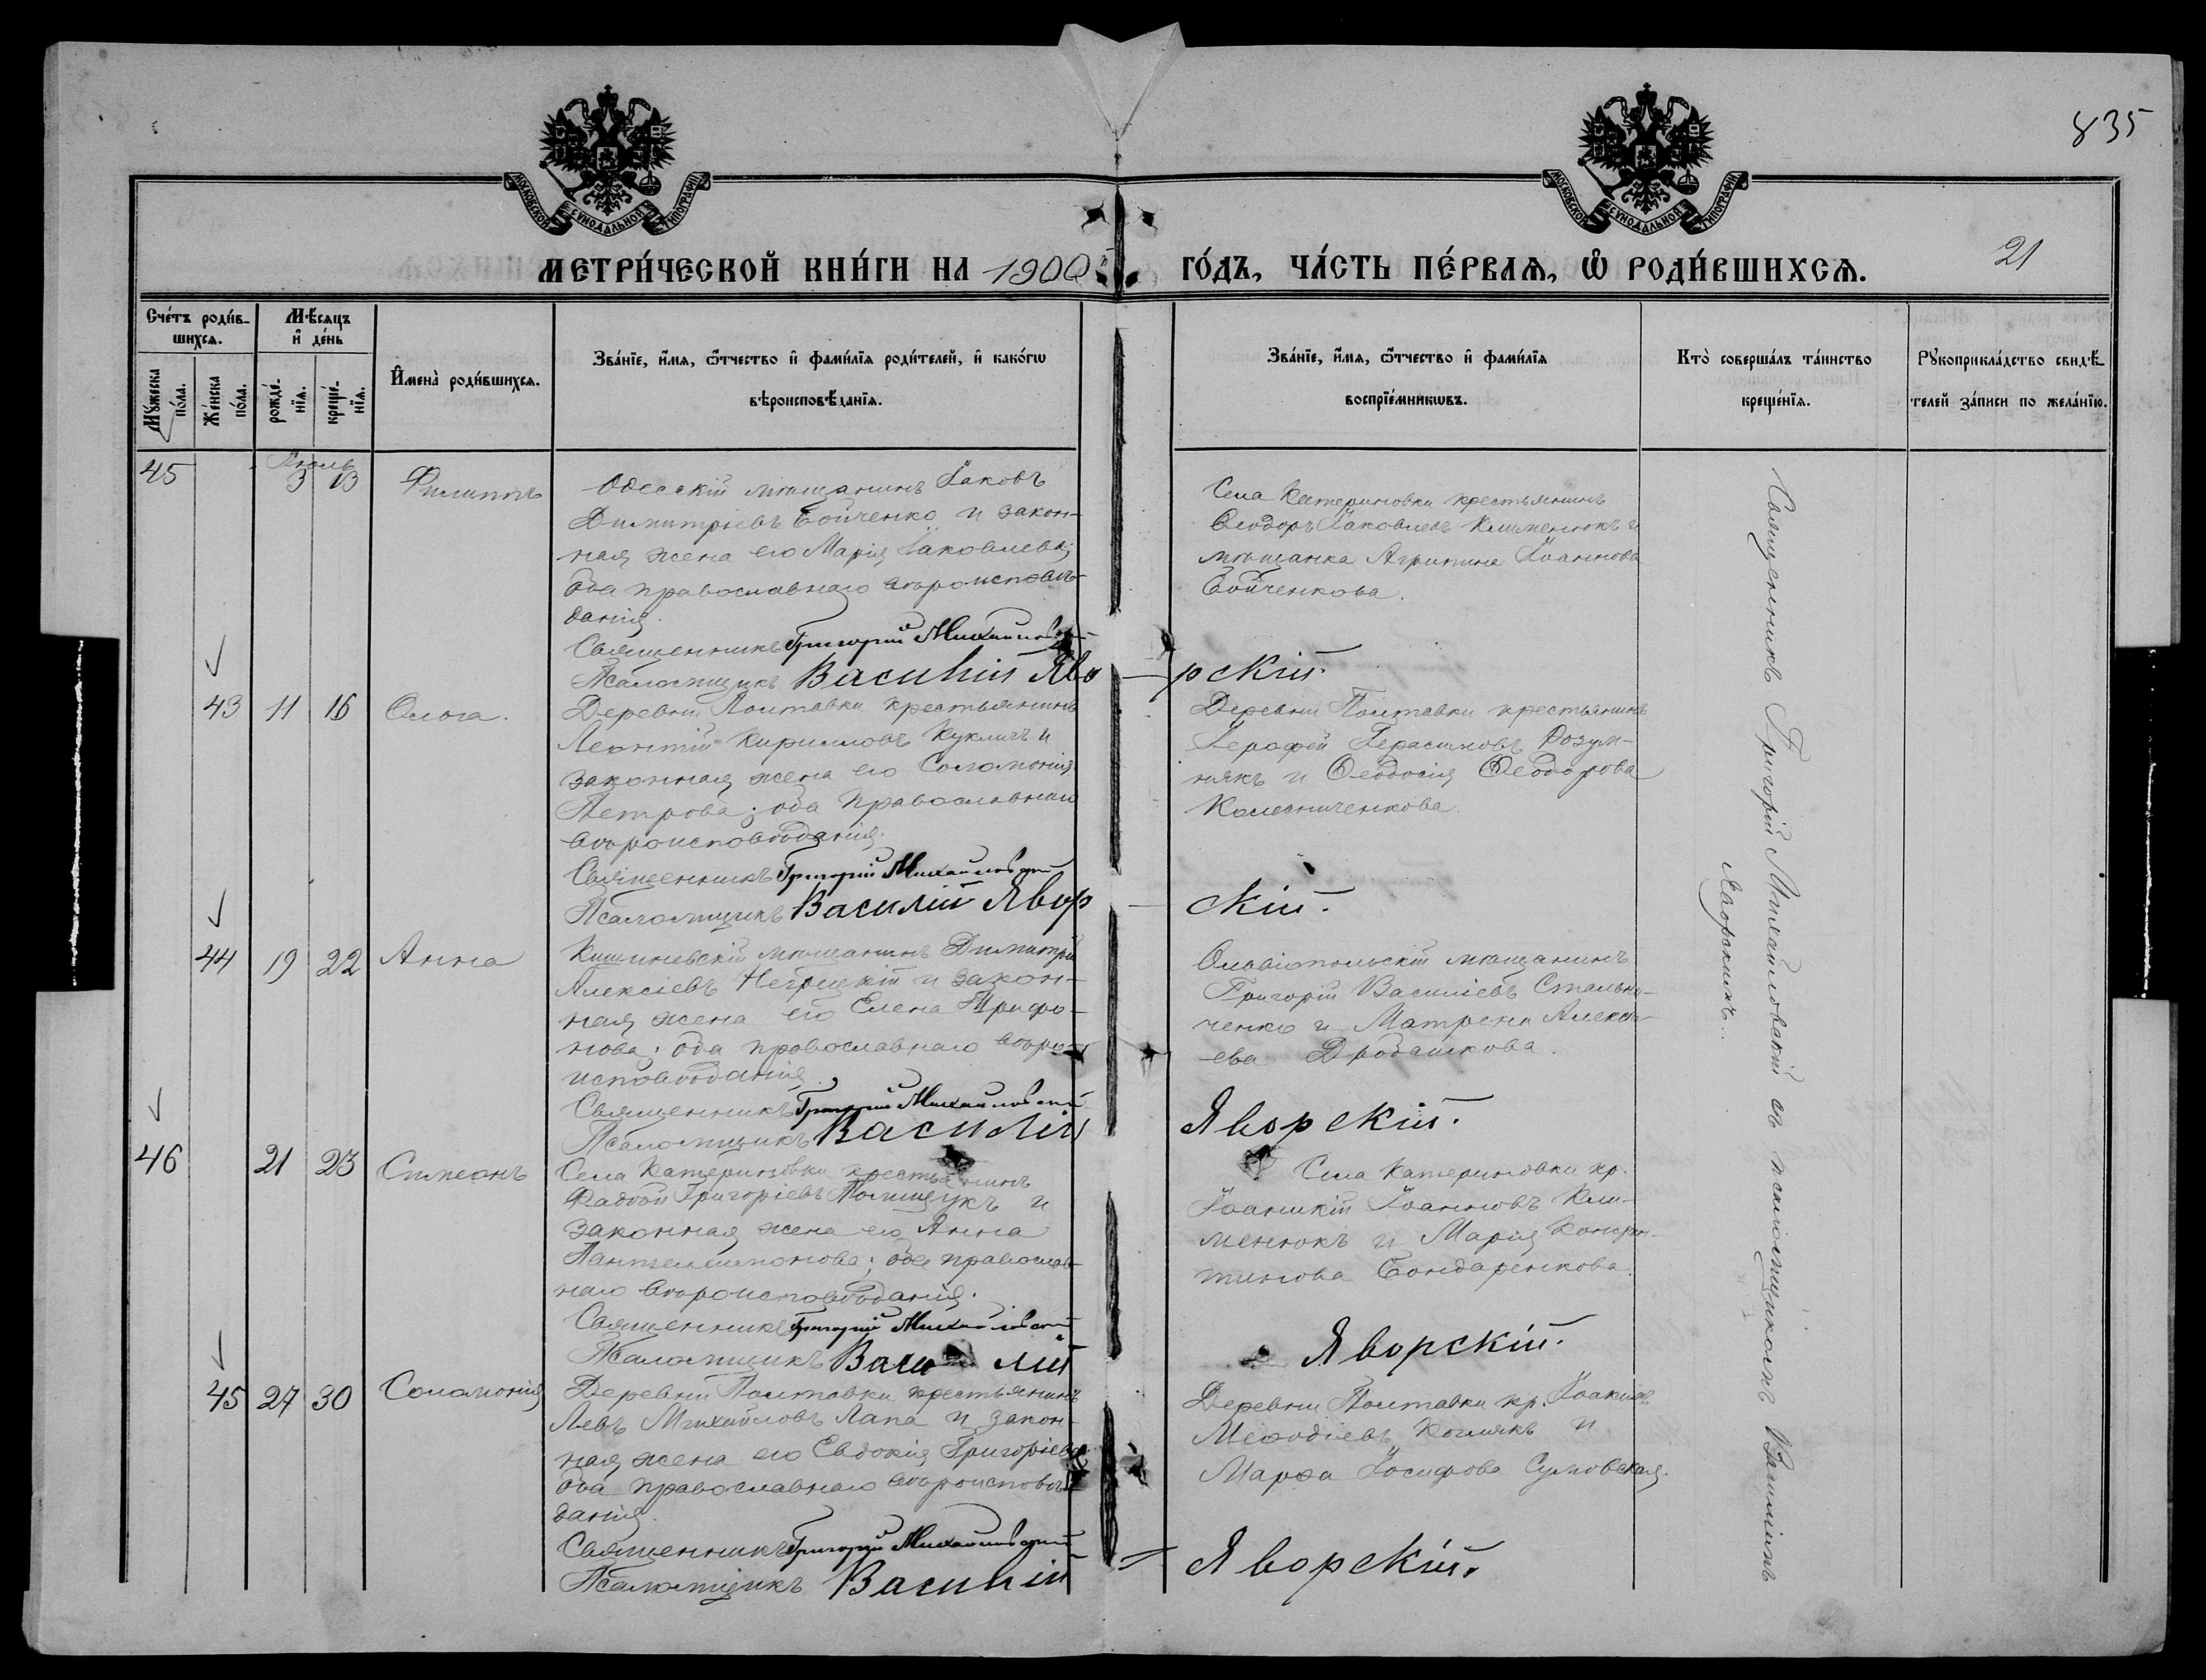 835
МОСКОВСКОЙ СѴНОДАЛЬНОЙ ТИПОГРАФІИ
МОСКОВСКОЙ СѴНОДАЛЬНОЙ ТИПОГРАФІИ
МЕТРИ́ЧЕСКОЙ КНИ́ГИ НА 1900 ГО́ДЪ, ЧА́СТЬ ПЕ́РВАЯ, Ѡ҆ РОДИ́ВШИХСѦ. 21
Сче́тъ роди́в-
шихсѧ.
Мѣ́сѧцъ
и҆ де́нь
Мꙋ́жеска
по́ла.
Же́нска
по́ла.
рожде́-
нїѧ.
креще́-
нїѧ.
И҆мена̀ роди́вшихсѧ.
Зва́нїе, и҆́мѧ, ѻ҆́тчество и҆ фами́лїѧ роди́телей, и҆ како́гѡ
вѣроисповѣ́данїѧ.
Зва́нїе, и҆́мѧ, ѻ҆́тчество и҆ фами́лїѧ
воспрїе́мникѡвъ.
Кто̀ соверша́лъ та́инство
креще́нїѧ.
Рꙋкоприкла́дство свидѣ́-
телей за́писи по жела́нїю.
Іюль
45 3 13 Филиппъ
Одесскій мѣщанинъ Іаковъ
Димитріевъ Бойченко и закон-
ная жена его Марія Іаковлева;
оба православнаго вѣроисповѣ-
данія.
Священникъ Григорій Михайловскій
Псаломщикъ Василій Яво-рскій.
Села Катериновки крестьянинъ
Ѳеодоръ Іаковлевъ Клименюкъ и
мѣщанка Агрипина Іоаннова
Бойченкова.
43 11 16 Ольга.
Деревни Полтавки крестьянинъ
Леонтій Кирилловъ Куклигъ и
законная жена его Соломонія
Петрова; оба православнаго
вѣроисповѣданія.
Священникъ Григорій Михайловскій
Псаломщикъ Василій Явор-скій.
Деревни Полтавки крестьянинъ
Іерофей Герасимовъ Розум-
някъ и Ѳеодосія Ѳеодорова
Колесниченкова.
44 19 22 Анна
Кишиневскій мѣщанинъ Димитрій
Алексіевъ Негрецкій и закон-
ная жена его Елена Трифо-
нова; оба православнаго вѣро-
исповѣданія.
Священникъ Григорій Михайловскій
Псаломщикъ Василій Яворскій.
Олавіопольскій мѣщанинъ
Григорій Василіевъ Стальни-
ченко и Матрена Алексі-
ева
46 21 23 Симеонъ
Села Катериновки крестьянинъ
Фаддей Григоріевъ Полищукъ и
законная жена его Анна
Пантелеимонова; оба православ-
наго вѣроисповѣданія.
Священникъ Григорій Михайловскій
Псаломщикъ Василій Яворскій.
Села Катериновки кр.
Іоаникій Іоанновъ Кли-
менюкъ и Марія Констан-
тинова Бондаренкова.
45 27 30 Соломонія
Деревни Полтавки крестьянинъ
Левъ Михайловъ Лапа и закон-
ная жена его Евдокія Григоріева
оба православнаго вѣроисповѣ-
данія.
Священникъ Григорій Михайловскій
Псаломщикъ Василій Яворскій.
Деревни Полтавки кр. Іоакимъ
Меѳодіевъ и
Марѳа Іосифова Сумовская.
Священникъ Григорій Михайловскій съ псаломщикомъ Василіемъ
Яворскимъ.